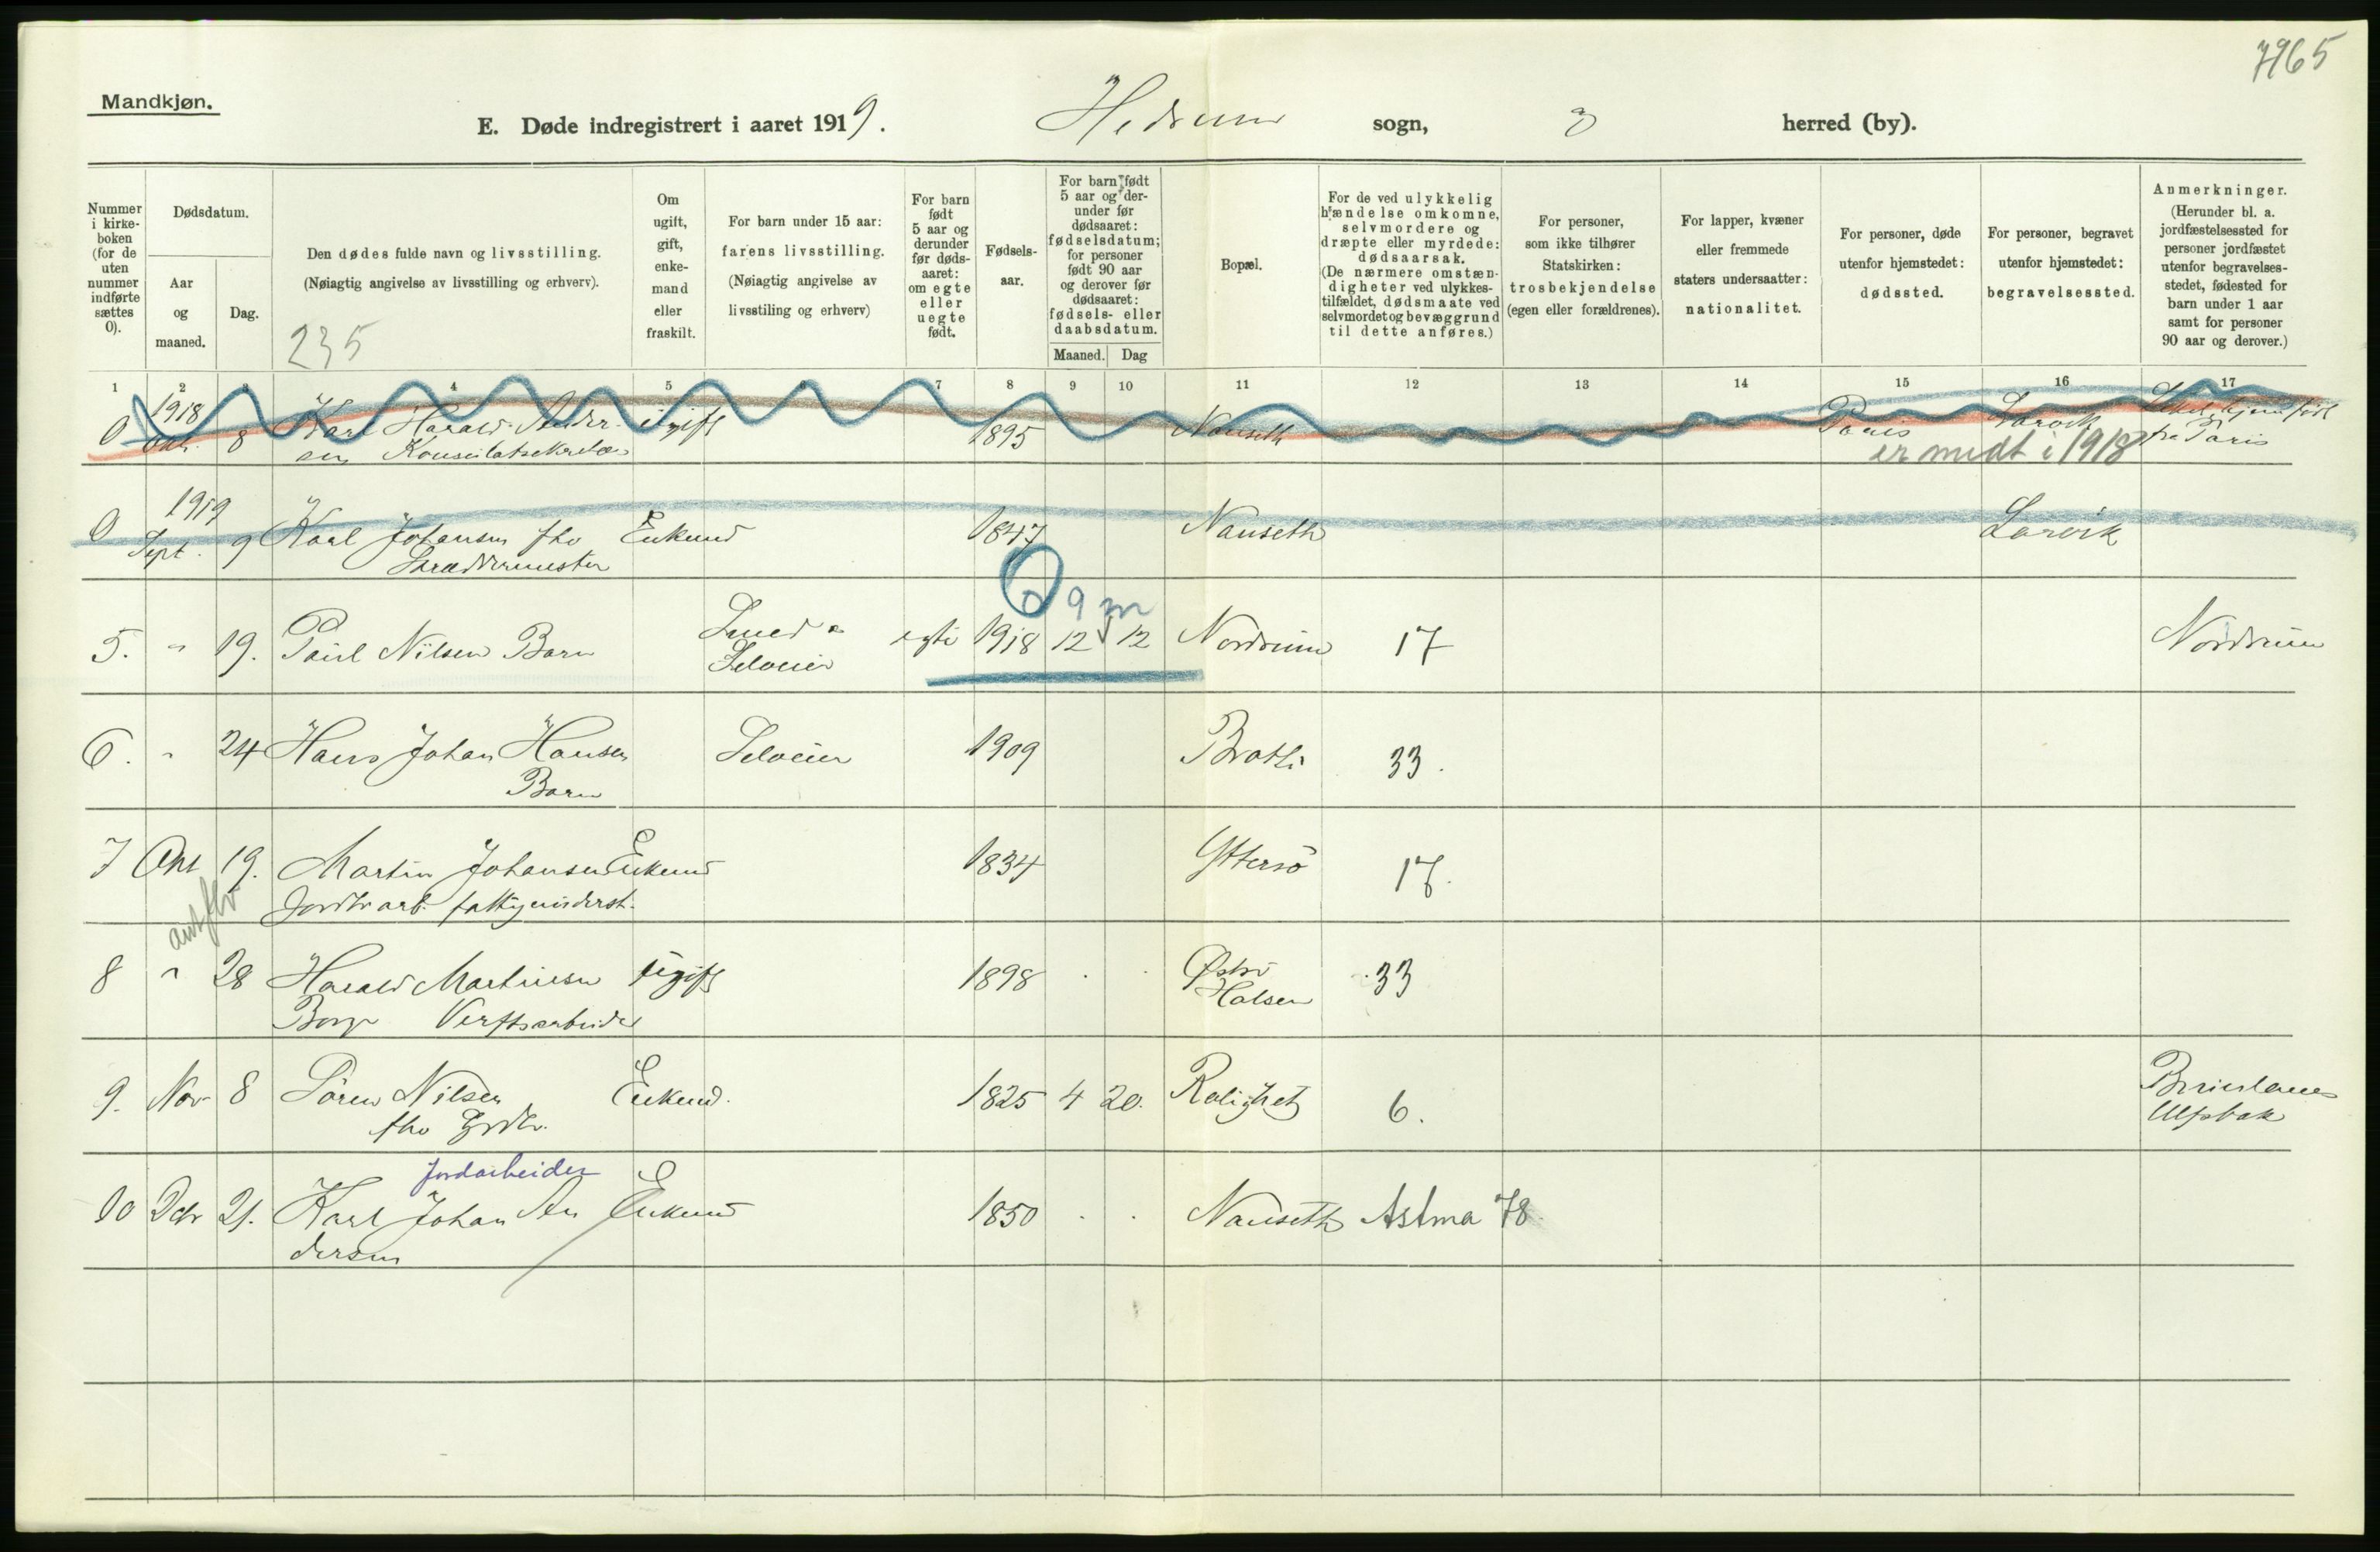 7965
Mandkjøn.
E. Døde indregistrert i aaret 1919. Hedrum sogn, herred (by).
Nummer i kirke-boken (for de uten nummer indførte sættes 0).
Dødsdatum.
Aar og maaned.
Dag.
Den dødes fulde navn og livsstilling.
(Nøiagtig angivelse av livsstilling og erhverv).
235
Om ugift, gift, enke-mand eller fraskilt.
For barn under 15 aar:
farens livsstilling.
(Nøiagtig angivelse av livsstiling og erhverv)
For barn født 5 aar og derunder før døds-aaret: om egte eller uegte født.
Fødsels-aar.
For barn født 5 aar og der-under før dødsaaret: fødselsdatum; for personer født 90 aar og derover før dødsaaret: fødsels- eller daabsdatum.
Maaned. Dag
Bopæl.
For de ved ulykkelig hændelse omkomne, selvmordere og dræpte eller myrdede: dødsaarsak.
(De nærmere omstæn-digheter ved ulykkes-tilfældet, dødsmaate ved selvmordet og bevæggrund til dette anføres.)
For personer, som ikke tilhører Statskirken: trosbekjendelse (egen eller forældrenes).
For lapper, kvæner eller fremmede staters undersaatter: nationalitet.
For personer, døde utenfor hjemstedet: dødssted.
For personer, begravet utenfor hjemstedet: begravelsessted.
Anmerkninger.
(Herunder bl. a. jordfæstelsessted for personer jordfæstet utenfor begravelses-stedet, fødested for barn under 1 aar samt for personer 90 aar og derover.)
1 2 3 4 5 6 7 8 9 10 11 12 13 14 15 16 17
1918
0 Okt. 8 Karl Harald Ander- ugift 1895 Nanseth Paris Larvik
sen Konsulatsekretær fra Paris
er medt i 1918
1919
0 Sept. 9 Karl Johansen fhv Enkemd 1847 Nanseth Larvik
Skræddermester
9 m
5. " 19. Paul Nilsen Barn Smed & Selveier egte 1918 12 12 Nordrum 17 Nordrum
6. " 24 Hans Johan Hansen Selveier 1909 Bratli 33.
Barn
7 Okt 19. Martin Johansen Enkemd 1834 Yttersö 17.
Jordbr arb. fattigunderst.
8 " 28 Harald Martinsen ugift 1898 Østre Halsen 33
Borge Verftsarbeider
9. Nov 8 Sören Nilsen Enkemd. 1825 4 20. Rolighet 6. Brunlanes
fhv Grdbr. Ulfsbak
Jordarbeider
10 Dcbr 21. Karl Johan An Enkemd 1850 Nanseth Astma 78
dersen